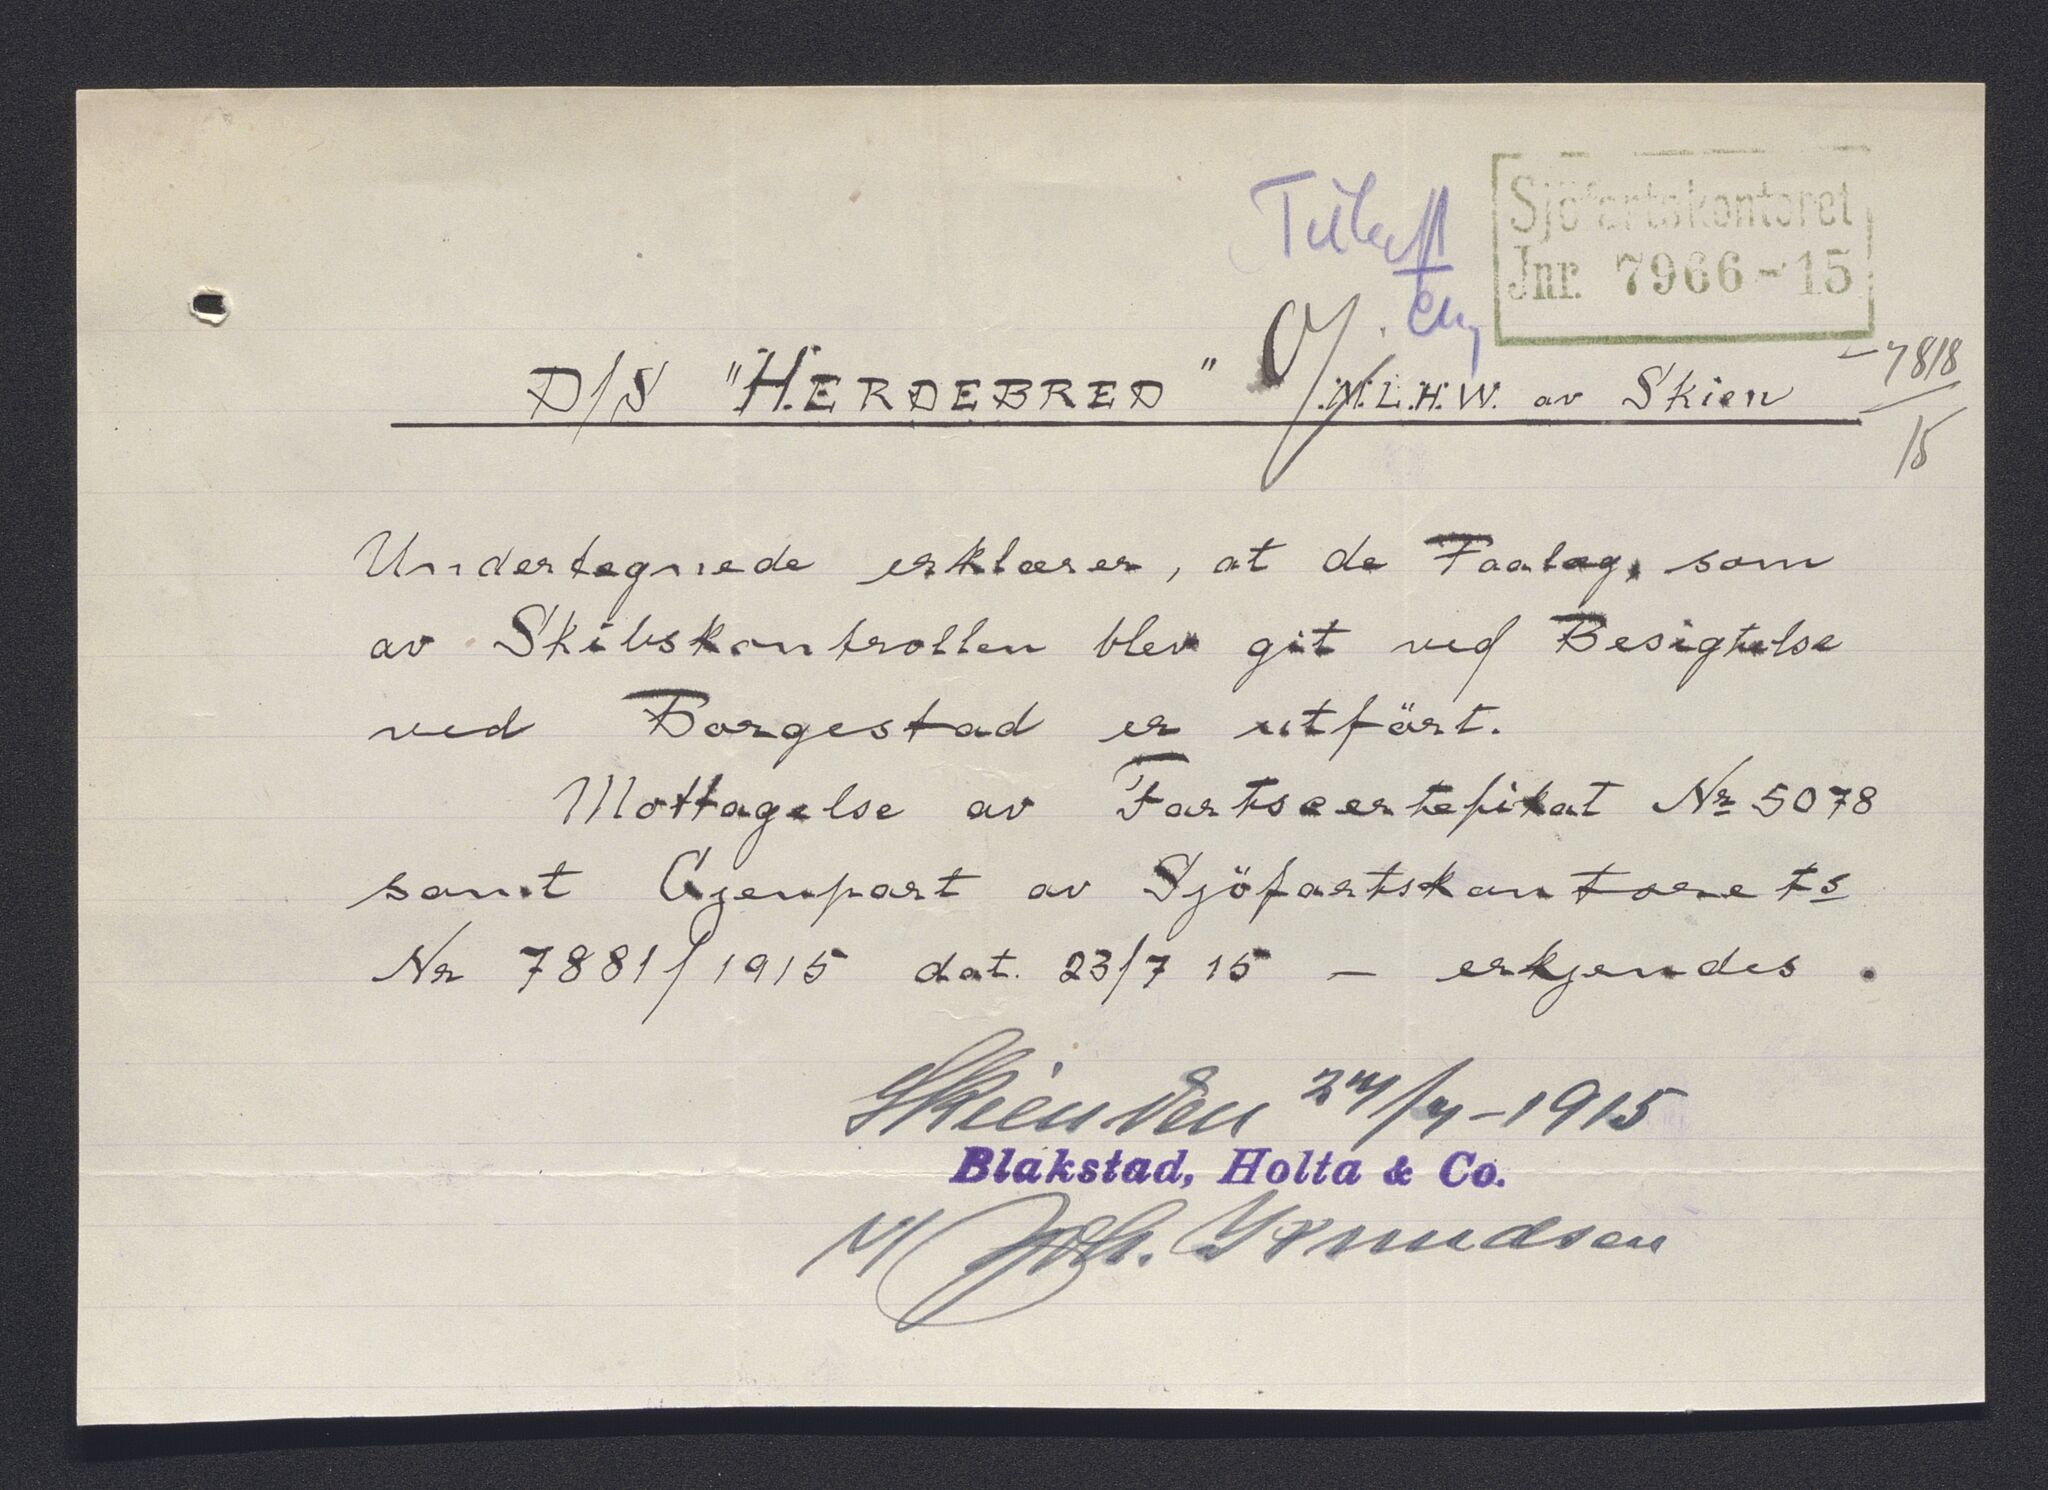 Sjöfartskontoret
Jnr. 7966-15
D/S "HERDEBRED" M.L.H.W. av Skien
-7818
15
Undertegnede erklærer, at de Paalæg, som
av Skibskontrollen blev git ved Besigtelse
ved Borgestad er utfört.
Mottagelse av Fartscertefikat Nr 5078
samt Gjenpart av Sjöfartskontorets
Nr 7881/1915 dat. 23/7 15 - erkjendes.
Skien den 24/7-1915
Blakstad, Holta & Co.
Joh.